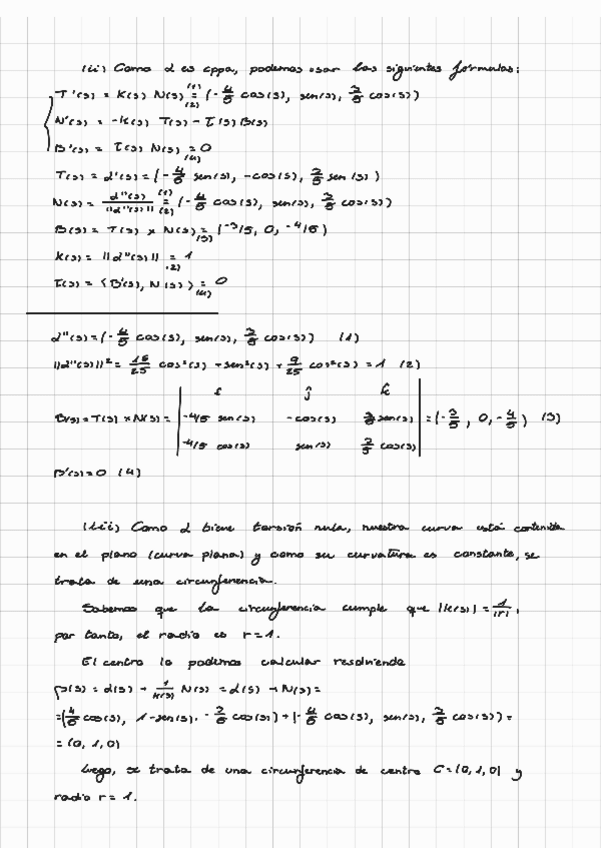 (ii) Como α es cppa, podemos usar las siguientes fórmulas:
T'(s) = K(s) N(s) =(1)(2) (-4/5 cos(s), sen(s), 3/5 cos(s))
N'(s) = -K(s) T(s) - τ(s) B(s)
B'(s) = τ(s) N(s) =(4) 0
T(s) = α'(s) = (-4/5 sen(s), -cos(s), 3/5 sen(s))
N(s) = α''(s)/||α''(s)|| =(1)(2) (-4/5 cos(s), sen(s), 3/5 cos(s))
B(s) = T(s) × N(s) =(3) (-3/5, 0, -4/5)
K(s) = ||α''(s)|| =(2) 1
τ(s) = ⟨B'(s), N(s)⟩ =(4) 0
α''(s) = (-4/5 cos(s), sen(s), 3/5 cos(s)) (1)
||α''(s)||² = 16/25 cos²(s) + sen²(s) + 9/25 cos²(s) = 1 (2)
i j k
B(s) = T(s) × N(s) = | -4/5 sen(s) -cos(s) 3/5 sen(s) | = (-3/5, 0, -4/5) (3)
-4/5 cos(s) sen(s) 3/5 cos(s)
B'(s) = 0 (4)
(iii) Como α tiene torsión nula, nuestra curva está contenida
en el plano (curva plana) y como su curvatura es constante, se
trata de una circunferencia.
Sabemos que la circunferencia cumple que |K(s)| = 1/|r|,
por tanto, el radio es r = 1.
El centro lo podemos calcular resolviendo
β(s) = α(s) + 1/K(s) N(s) = α(s) + N(s) =
= (4/5 cos(s), 1-sen(s), -3/5 cos(s)) + (-4/5 cos(s), sen(s), 3/5 cos(s)) =
= (0, 1, 0)
Luego, se trata de una circunferencia de centro C = (0, 1, 0) y
radio r = 1.